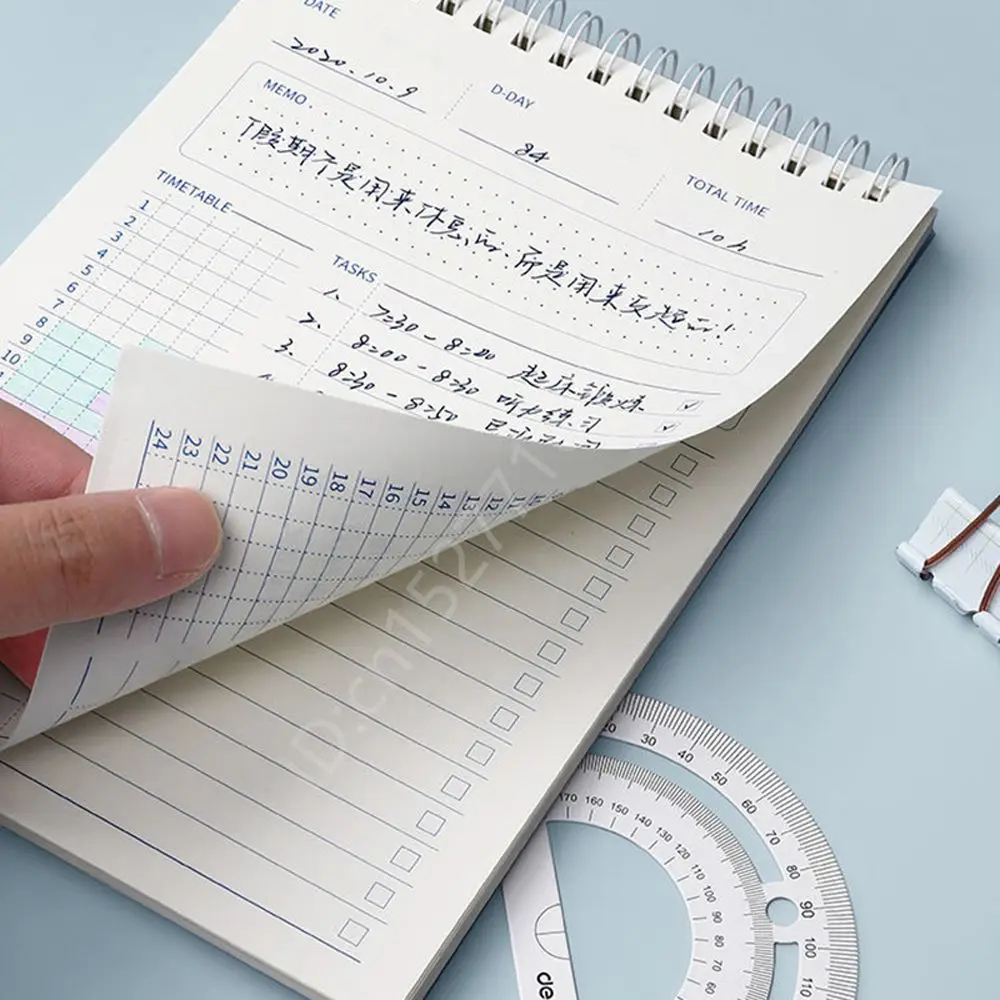 DATE
2020.10.9
D-DAY
84
TOTAL TIME
10h
MEMO.
「假期不是用来休息的,而是用来反超的!
TIMETABLE
1
2
3
4
5
6
7
8
9
10
TASKS
1. 7:30 - 8:00 起床锻炼
2. 8:00 - 8:30 听力练习
3. 8:30 - 8:50
24 23 22 21 20 19 18 17 16 15 14 13 12 11
ID:cn152771
20 30 40 50 60 70 80 90 100 110
170 160 150 140 130 120 110 100 90 80 70 60
de